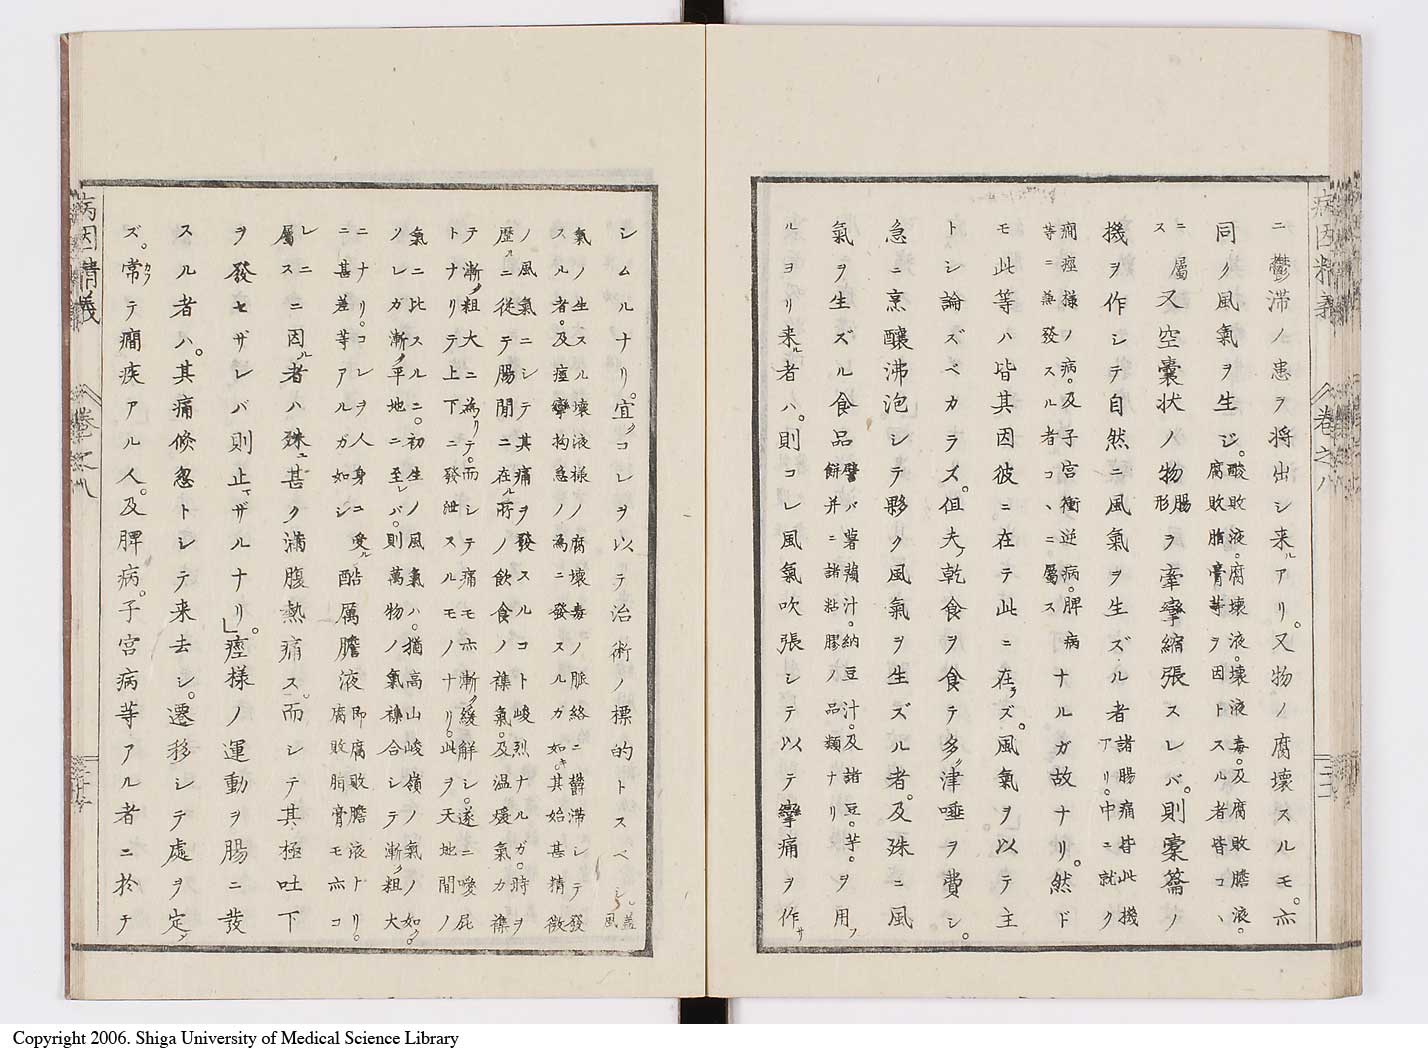 病因精義
卷之八
ニ鬱滞ノ患ヲ将出シ来ルアリ。又物ノ腐壊スルモ。亦
同ク風氣ヲ生ジ。酸敗液。腐壊液。壊液毒。及腐敗膽液。
腐敗脂膏等ヲ因トスル者皆コヽ
ニ屬
ス
又空嚢状ノ物腸
形
ヲ牽攣縮張スレバ。則槖籥ノ
機ヲ作シテ自然ニ風氣ヲ生ズル者諸腸痛皆此機
アリ。中ニ就ク
癇痙様ノ病。及子宮衝逆病。脾病
等ニ兼發スル者コヽニ屬ス
ナルガ故ナリ。然ド
モ此等ハ皆其因彼ニ在テ此ニ在ラズ。風氣ヲ以テ主
トシ論ズベカラズ。但夫ノ乾食ヲ食テ多ク津唾ヲ費シ。
急ニ烹釀沸泡シテ夥ク風氣ヲ生ズル者。及殊ニ風
氣ヲ生ズル食品譬バ薯蕷汁。納豆汁。及諸豆。芋。ヲ用フ
餅并ニ諸粘膠ノ品類ナリ
ルヨリ来ル者ハ。則コレ風氣吹張シテ以テ攣痛ヲ作サ
シムルナリ。宜クコレヲ以テ治術ノ標的トスベシ。蓋
風
氣ノ生スル壊液様ノ腐壊毒ノ脈絡ニ欝滞シテ發
スル者。及痙攣拘急ノ為ニ發スルガ如キ。其始甚精微
ノ風氣ニシテ其痛ヲ發スルコト峻烈ナルガ。時ヲ
歴ルニ従テ腸間ニ在ル所ノ飲食ノ襍氣。及温煖氣カ襍
テ漸ク粗大ニ為リテ。而シテ痛モ亦漸ク緩解シ。遂ニ噯屁
トナリテ上下ニ發泄スルモノナリ。此ヲ天地間ノ
氣ニ比スルニ。初生ノ風氣ハ。猶高山峻嶺ノ氣ノ如ク。
ノレガ漸ク平地ニ至レバ。則萬物ノ氣襍合シテ漸ク粗大
ニナリ。コレヲ人身ニ受ル
ニ甚差等アルガ如シ
酷厲膽液即腐敗膽液ナリ。
腐敗脂膏モ亦コ
レニ
屬ス
ニ因ル者ハ殊ニ甚ク満腹熱痛ス。而シテ其極吐下
ヲ發セザレバ則止マザルナリ。」痙様ノ運動ヲ腸ニ發
スル者ハ。其痛倏忽トシテ来去シ。遷移シテ處ヲ定メ
ズ。常テ癇疾アル人。及脾病。子宮病等アル者ニ於テ
病因精義
卷之八
Copyright 2006. Shiga University of Medical Science Library